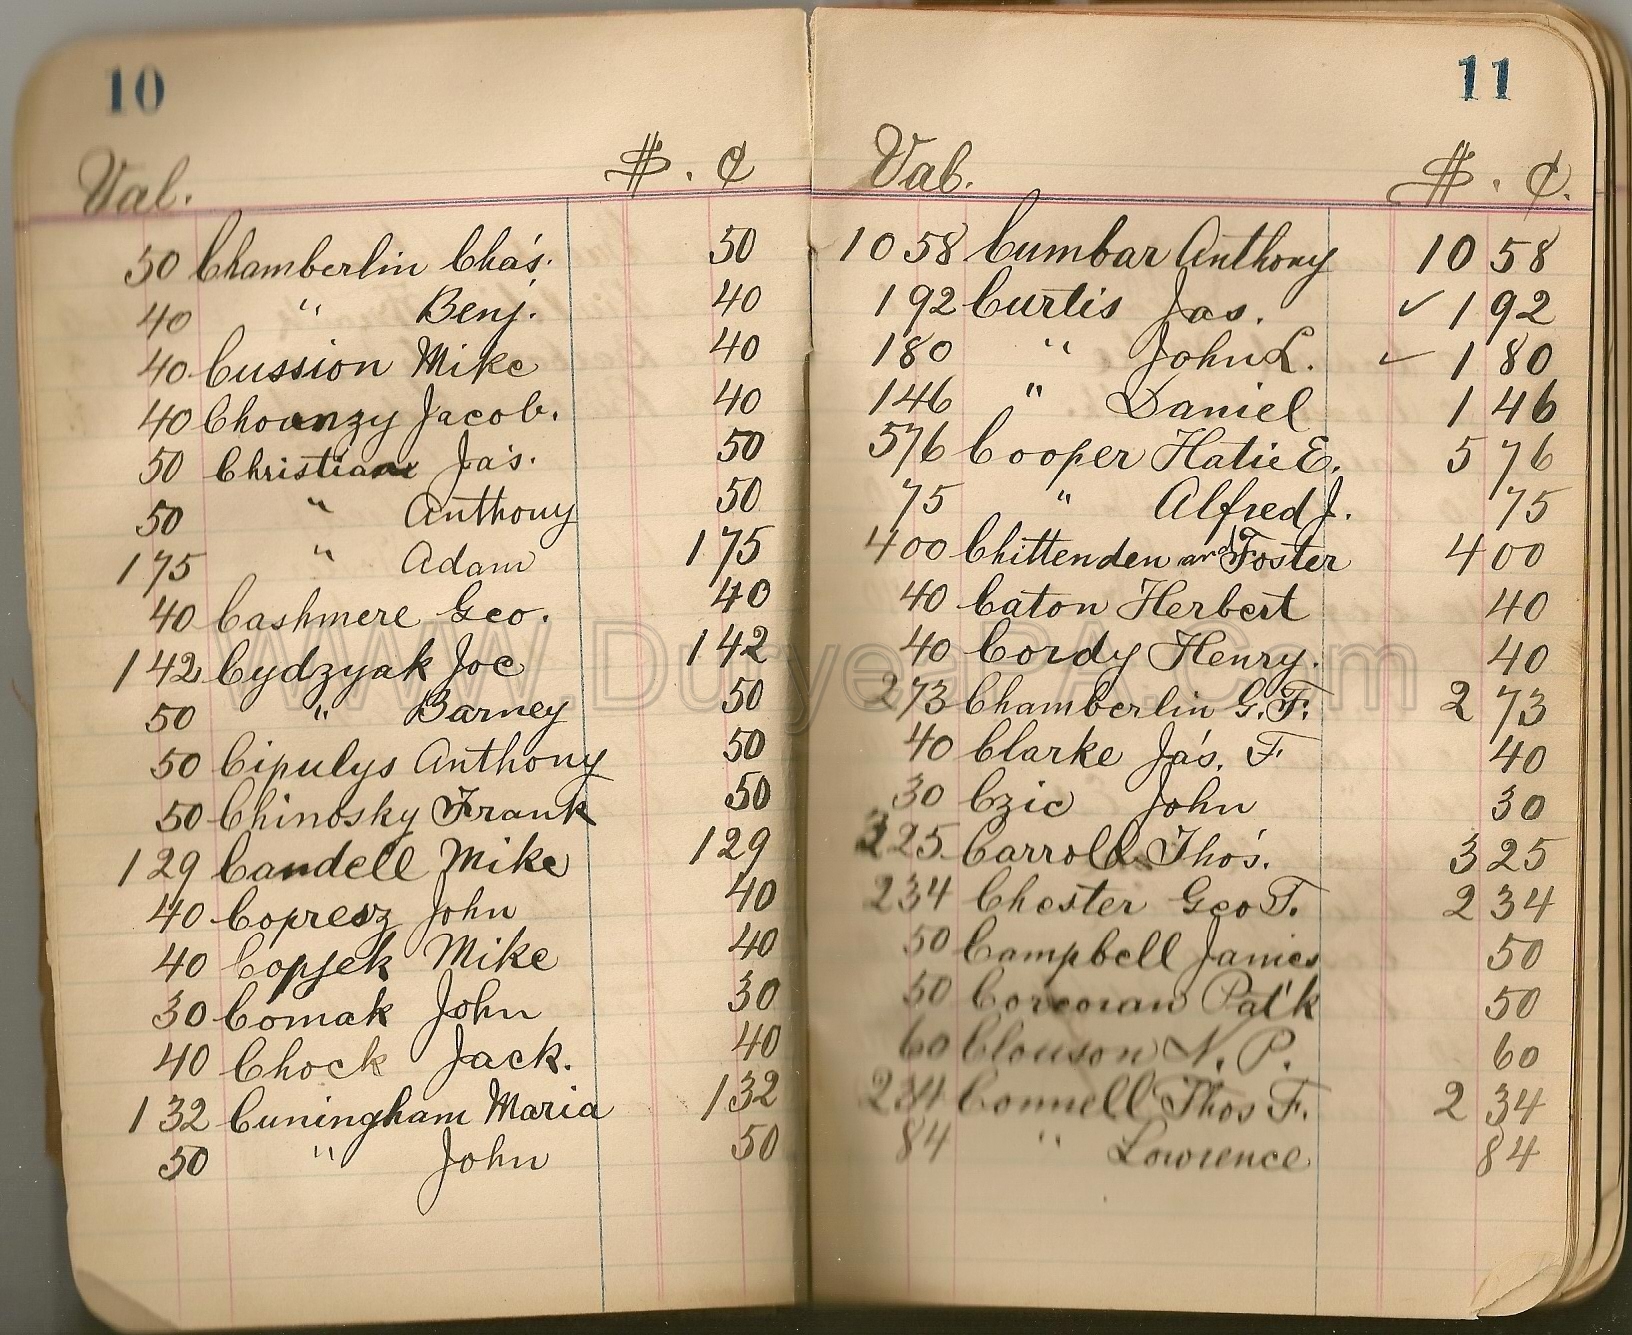 10
Val. $. ¢
50 Chamberlin Cha's. 50
40 " Benj. 40
40 Cussion Mike 40
40 Chounzy Jacob. 40
50 Christian Ja's. 50
50 " Anthony 50
175 " Adam 175
40 Cashmere Geo. 40
142 Cydzyak Joe 142
50 " Barney 50
50 Cipulys Anthony 50
50 Chinosky Frank 50
129 Candell Mike 129
40 Copresz John 40
40 Copjek Mike 40
30 Comak John 30
40 Chock Jack. 40
132 Cuningham Maria 132
50 " John 50
11
Val. $. ¢.
1058 Cumbar Anthony 10 58
192 Curtis Jas. ✓ 1 92
180 " John L. ✓ 1 80
146 " Daniel 1 46
576 Cooper Hatie E. 5 76
75 " Alfred J. 75
400 Chittenden and Foster 4 00
40 Caton Herbert 40
40 Cordy Henry. 40
273 Chamberlin G. F. 2 73
40 Clarke Ja's. F 40
30 Czic John 30
325 Carroll Tho's. 3 25
234 Chester Geo F. 2 34
50 Campbell James 50
50 Corcoran Pat'k 50
60 Clouson N. P. 60
234 Connell Thos F. 2 34
84 " Lowrence 84
WWW.DuryeaPA.Com